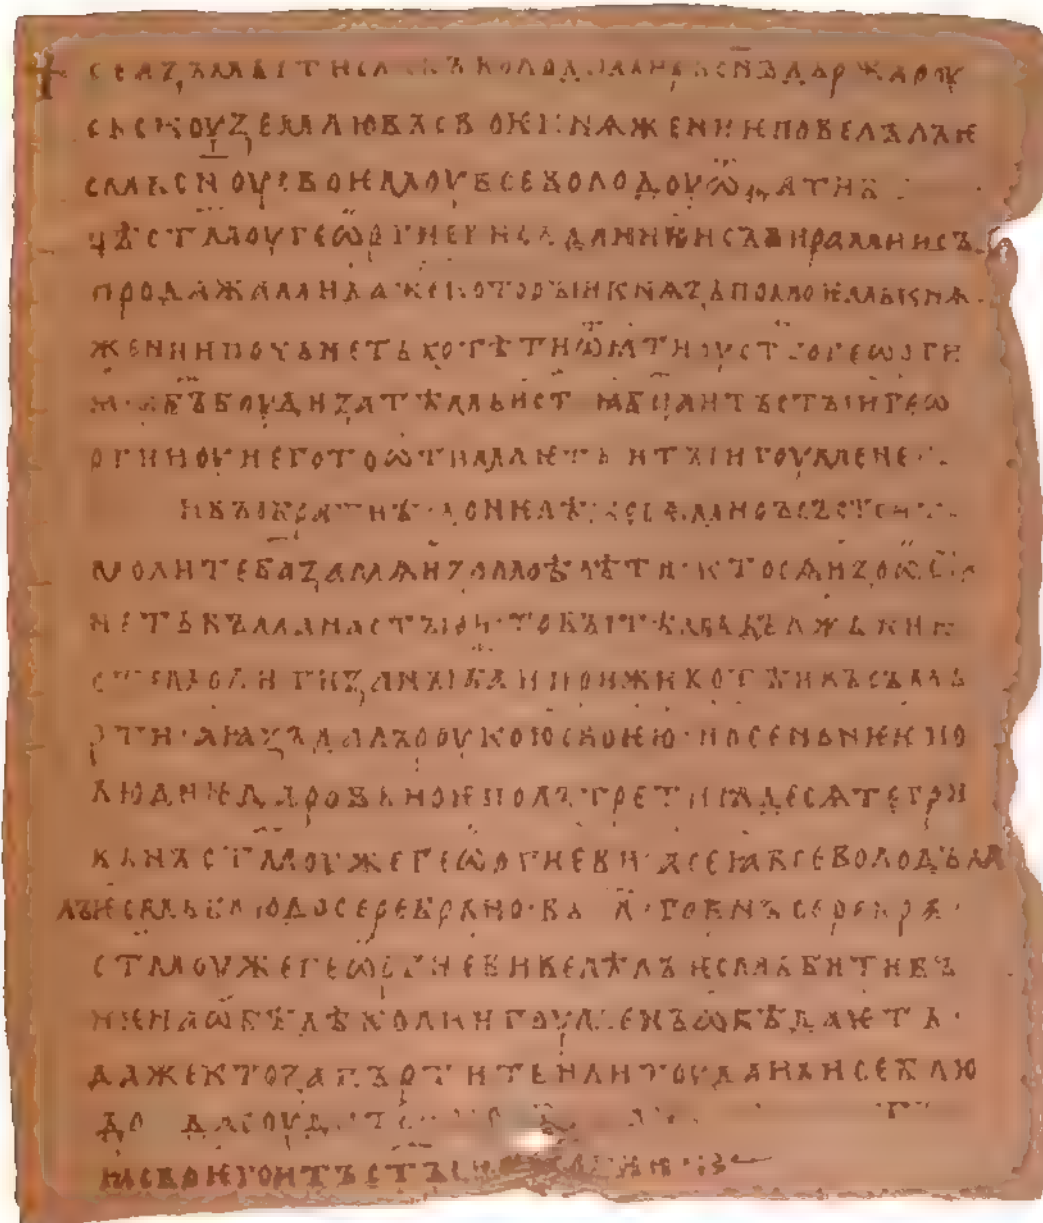 ✝ Се азъ Мьстиславъ Володимирь сн҃ъ дьржа Роу
сьскоу землю въ своѥ кнѧжениѥ повелѣлъ ѥ
смь сн҃оу своѥмоу Всеволодоу ѿдати Боуи
цѣ ст҃моу Геѡргиеви съ данию и съ вирами и съ
продажами даже которыи кнѧзь по моѥмь кнѧ
жении почьнеть хотѣти ѿѧти оу ст҃го Геѡрги
ꙗ а б҃ъ боуди за тѣмь и ст҃аꙗ бц҃а и тъ ст҃ыи Геѡ
ргии оу него то ѿимаѥть и ты игоумене
и вы братиѣ донелѣже сѧ миръ състоить
молите б҃а за мѧ и за моѣ дѣти кто сѧ изоѡста
неть въ манастыри то вы тѣмь дължьни ѥ
сте молити за ны б҃а и при животѣ и въ съмь
рти а ꙗзъ далъ роукою своѥю и осеньнѥѥ по
людиѥ даровьноѥ полътретиꙗдесѧте гри
вьнъ ст҃моу же Геѡргиеви а се ꙗ Всеволодъ да
лъ ѥсмь блюдо серебрьно въ л҃ грвнъ серебра
ст҃моу же Геѡргиеви велѣлъ ѥсмь бити въ
нѥ на ѡбѣдѣ коли игоуменъ ѡбѣдаѥть
даже кто запъртить или тоу дань и се блю
до да соудить
ꙗ своѥго и тъ ст҃ыи Геѡргии